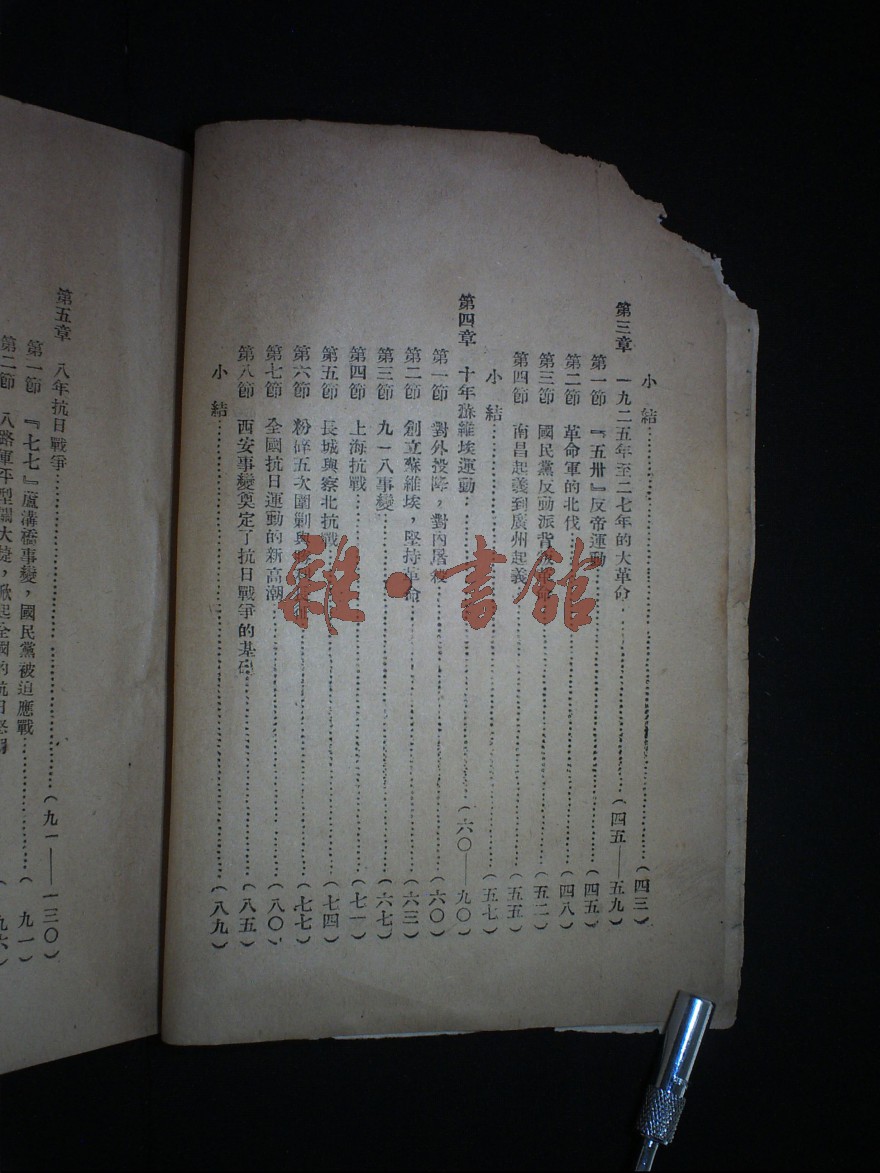 小結……(四三)
第三章 一九二五年至二七年的大革命……(四五——五九)
第一節 『五卅』反帝運動……(四五)
第二節 革命軍的北伐……(四八)
第三節 國民黨反動派背……(五二)
第四節 南昌起義到廣州起義……(五五)
小結……(五七)
第四章 十年蘇維埃運動……(六〇——九〇)
第一節 對外投降，對內屠殺……(六〇)
第二節 創立蘇維埃，堅持革命……(六三)
第三節 九一八事變……(六七)
第四節 上海抗戰……(七一)
第五節 長城與察北抗戰……(七四)
第六節 粉碎五次圍剿與……(七七)
第七節 全國抗日運動的新高潮……(八〇)
第八節 西安事變奠定了抗日戰爭的基礎……(八五)
小結……(八九)
第五章 八年抗日戰爭……(九一——一三〇)
第一節 『七七』廬溝橋事變，國民黨被迫應戰……(九一)
第二節 八路軍平型關大捷，掀起全國的抗日……(九六)
雜·書館